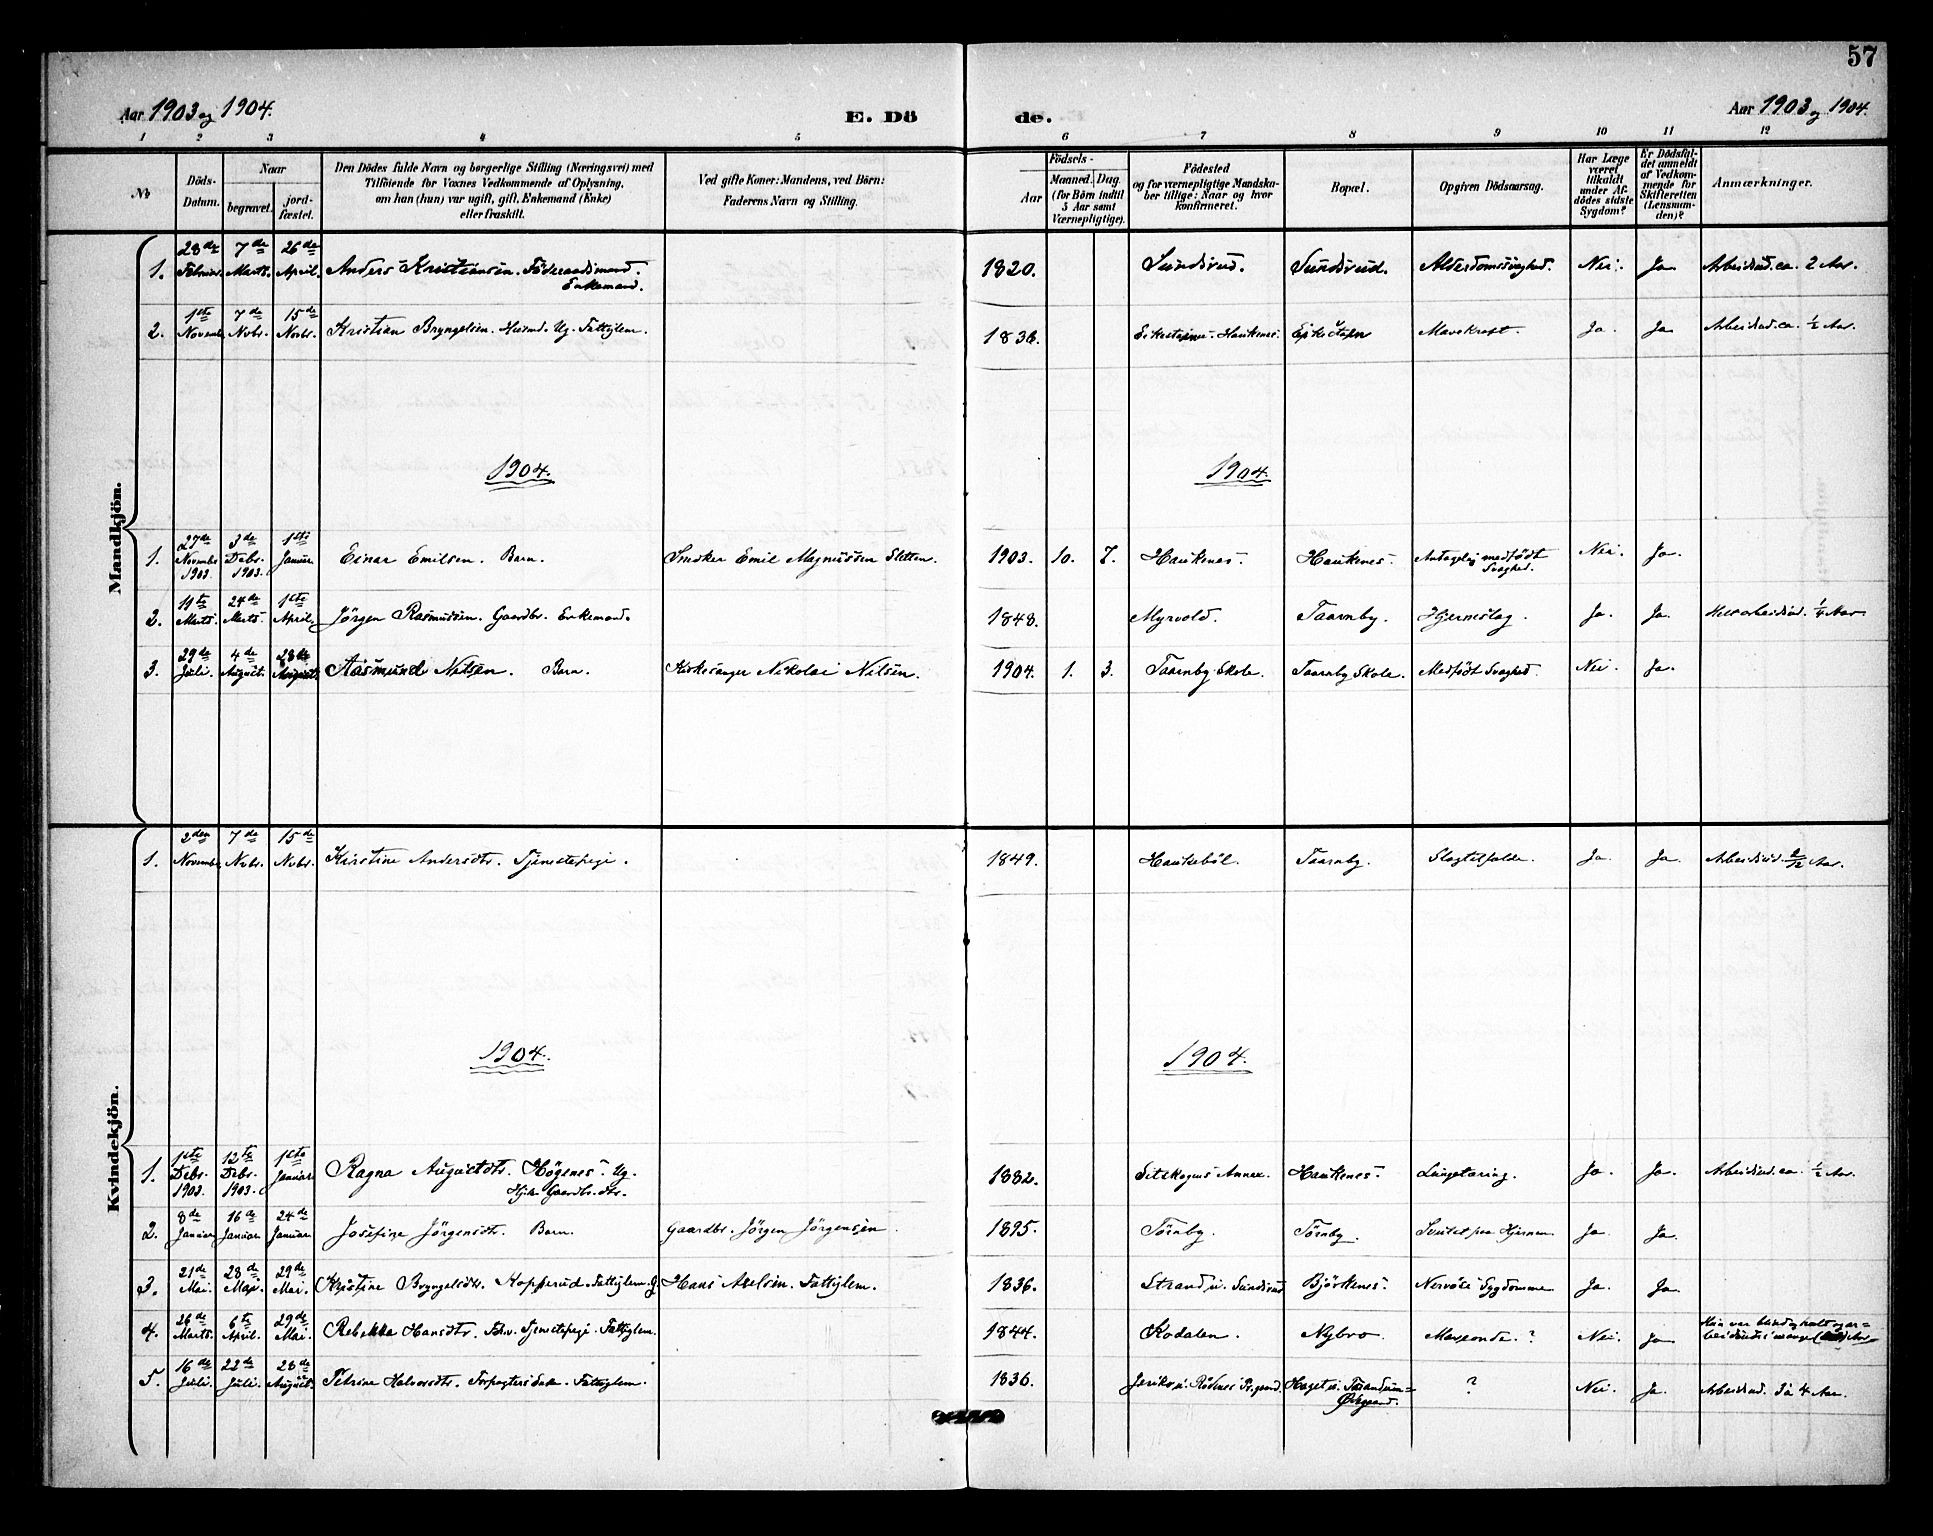 57
Aar 1903 og 1904.
E. Döde.
Aar 1903 og 1904.
1 2 3 4 5 6 7 8 9 10 11 12
No
Döds-Datum.
Naar
begravet.
jordfæstet.
Den Dödes fulde Navn og borgerlige Stilling (Næringsvei) med
Tilföiende for Voxnes Vedkommende af Oplysning,
om han (hun) var ugift, gift, Enkemand (Enke)
eller fraskilt.
Ved gifte Koner: Mandens, ved Börn:
Faderens Navn og Stilling.
Födsels-
Aar
Maaned. Dag
(for Börn indtil
5 Aar samt
Værnepligtige).
Födested
og for værnepligtige Mandskaber tillige: Naar og hvor
konfirmeret.
Bopæl.
Opgiven Dödsaarsag.
Har Læge
været
tilkaldt
under Afdödes sidste
Sygdom?
Er Dödsfaldet anmeldt
af Vedkommende for
Skifteretten
(Lensmanden)?
Anmærkninger.
Mandkjön.
1. 28de Februar. 7de Marts. 26de April. Anders Kristiansen. Föderaadsmand. Enkemand. 1820. Sundsvud. Sundsvud. Alderdomssvaghed. Nei. Ja. Arbeidsud. ca. 2 Aar.
2. 1ste Novembr. 7de Novbr. 15de Novbr. Kristian Bryngelsen. Husmd. Ug. Fattiglem. 1836. Haukenes. Mavekræft. Ja. Ja. Arbeidsud. ca. ½ Aar.
1904. 1904.
1. 27de Novembr. 1903. 3de Debr. 1903. 1ste Januar. Einar Emilsen. Barn. Snedker Emil Magnussen Sletten. 1903. 10. 7. Haukenes. Haukenes. Antagelig medfödt Svaghed. Nei. Ja.
2. 19te Marts. 24de Marts. 1ste April. Jörgen Rasmussen. Gaardbr. Enkemand. 1848. Myrvold. Taarnby. Hjerneslag. Ja. Ja. arbeidsud. ¼ Aar
3. 29de Juli. 4de August. 28de August. Aasmund Nilsen. Barn. Kirkesanger Nikolai Nilsen. 1904. 1. 3. Taarnby Skole. Taarnby Skole. Medfödt Svaghed. Nei. Ja.
Kvindekjön.
1. 2den Novembr. 7de Nvbr. 15de Nvbr. Kirstine Andersdtr. Tjenestepige. 1849. Haukeböl. Taarnby. Slagtilfælde. Ja. Ja. Arbeidsud. 2/12 Aar.
1904. 1904.
1. 1ste Debr. 1903. 12te Debr. 1903. 1ste Januar. Ragna Augustdtr. Högenes. Ug. Hjm. Gaardbr.dtr. 1882. Setskogens Annex. Haukenes. Lungetæring. Ja. Ja. Arbeidsud. ca. ½ Aar.
2. 8de Januar. 16de Januar. 24de Januar. Josefine Jörgensdtr. Barn. Gaardbr. Jörgen Jörgensen. 1895. Törnby. Törnby. paa Hjernen. Ja. Ja.
3. 21de Mai. 28de Mai. 29de Mai. Kristine Bryngelsdtr. Kopperud. Fattiglem. G. Hans Axelsen. Fattiglem. 1836. Strand u. Sundsvud. Björkenes. Nervöse Sygdomme. Ja. Ja.
4. 26de Marts. 6te April. 29de Mai. Rebekka Hansdtr. Tjenestepige. Fattiglem. 1844. Kodalen. Nybro. Maveonde. ? Nei. Ja. Hun var blind og halt og arbeidsudr. i mange Aar
5. 16de Juli. 22de Juli. 28de August. Petrine Halvorsdtr. Forpagterske. Fattiglem. 1836. Jeriko u. Rödenes Prgjæld. Haget u. Taraldrum Östgaard. ? Nei. Ja. Arbeidsud. 3 à 4 Aar.